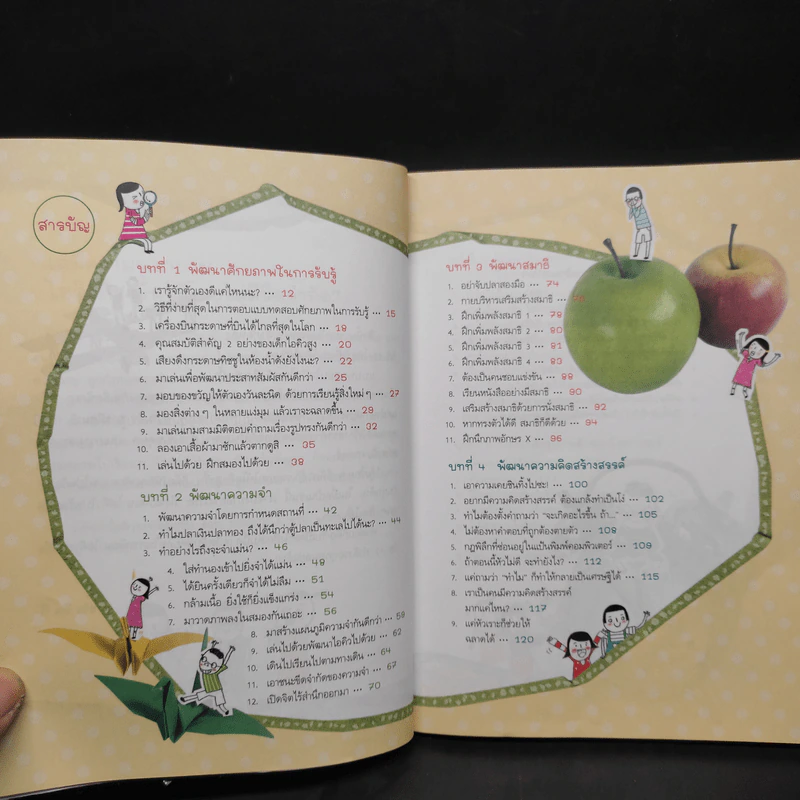 สารบัญ
บทที่ 1 พัฒนาศักยภาพในการรับรู้
1. เรารู้จักตัวเองดีแค่ไหนนะ? ... 12
2. วิธีที่ง่ายที่สุดในการตอบแบบทดสอบศักยภาพในการรับรู้ ... 15
3. เครื่องบินกระดาษที่บินได้ไกลที่สุดในโลก ... 19
4. คุณสมบัติสำคัญ 2 อย่างของเด็กไอคิวสูง ... 20
5. เสียงดึงกระดาษทิชชูในห้องน้ำดังยังไงนะ? ... 22
6. มาเล่นเพื่อพัฒนาประสาทสัมผัสกันดีกว่า ... 25
7. มอบของขวัญให้ตัวเองวันละนิด ด้วยการเรียนรู้สิ่งใหม่ๆ ... 27
8. มองสิ่งต่างๆ ในหลายแง่มุม แล้วเราจะฉลาดขึ้น ... 29
9. มาเล่นเกมสามมิติตอบคำถามเรื่องรูปทรงกันดีกว่า ... 32
10. ลองเอาเสื้อผ้ามาซักแล้วตากดูสิ ... 35
11. เล่นไปด้วย ฝึกสมองไปด้วย ... 39
บทที่ 2 พัฒนาความจำ
1. พัฒนาความจำโดยการกำหนดสถานที่ ... 42
2. ทำไมปลาเงินปลาทอง ถึงได้นึกว่าตู้ปลาเป็นทะเลไปได้นะ? ... 44
3. ทำอย่างไรถึงจะจำแม่น? ... 46
4. ใส่ทำนองเข้าไปยิ่งจำได้แม่น ... 49
5. ได้ยินครั้งเดียวก็จำได้ไม่ลืม ... 51
6. กล้ามเนื้อ ยิ่งใช้ก็ยิ่งแข็งแกร่ง ... 54
7. มาวาดภาพลงในสมองกันเถอะ ... 56
8. มาสร้างแผนภูมิความจำกันดีกว่า ... 59
9. เล่นไปด้วยพัฒนาไอคิวไปด้วย ... 62
10. เดินไปเรียนไปตามทางเดิน ... 64
11. เอาชนะขีดจำกัดของความจำ ... 67
12. เปิดจิตไร้สำนึกออกมา ... 70
บทที่ 3 พัฒนาสมาธิ
1. อย่าจับปลาสองมือ ... 74
2. กายบริหารเสริมสร้างสมาธิ ...
3. ฝึกเพิ่มพลังสมาธิ 1 ... 79
4. ฝึกเพิ่มพลังสมาธิ 2 ... 80
5. ฝึกเพิ่มพลังสมาธิ 3 ... 81
6. ฝึกเพิ่มพลังสมาธิ 4 ... 83
7. ต้องเป็นคนชอบแข่งขัน ... 89
8. เรียนหนังสืออย่างมีสมาธิ ... 90
9. เสริมสร้างสมาธิด้วยการนั่งสมาธิ ... 92
10. หากทรงตัวได้ดี สมาธิก็ดีด้วย ... 94
11. ฝึกนึกภาพอักษร X ... 96
บทที่ 4 พัฒนาความคิดสร้างสรรค์
1. เอาความเคยชินทิ้งไปซะ! ... 100
2. อยากมีความคิดสร้างสรรค์ ต้องแกล้งทำเป็นโง่ ... 102
3. ทำไมต้องตั้งคำถามว่า "จะเกิดอะไรขึ้น ถ้า..." ... 105
4. ไม่ต้องหาคำตอบที่ถูกต้องตายตัว ... 108
5. กฎพิลึกที่ซ่อนอยู่ในแป้นพิมพ์คอมพิวเตอร์ ... 109
6. ถ้าตอนนี้หัวไม่ดี จะทำยังไง? ... 112
7. แค่ถามว่า "ทำไม" ก็ทำให้กลายเป็นเศรษฐีได้ ... 115
8. เราเป็นคนมีความคิดสร้างสรรค์
มากแค่ไหน? ... 117
9. แค่หัวเราะก็ช่วยให้
ฉลาดได้ ... 120